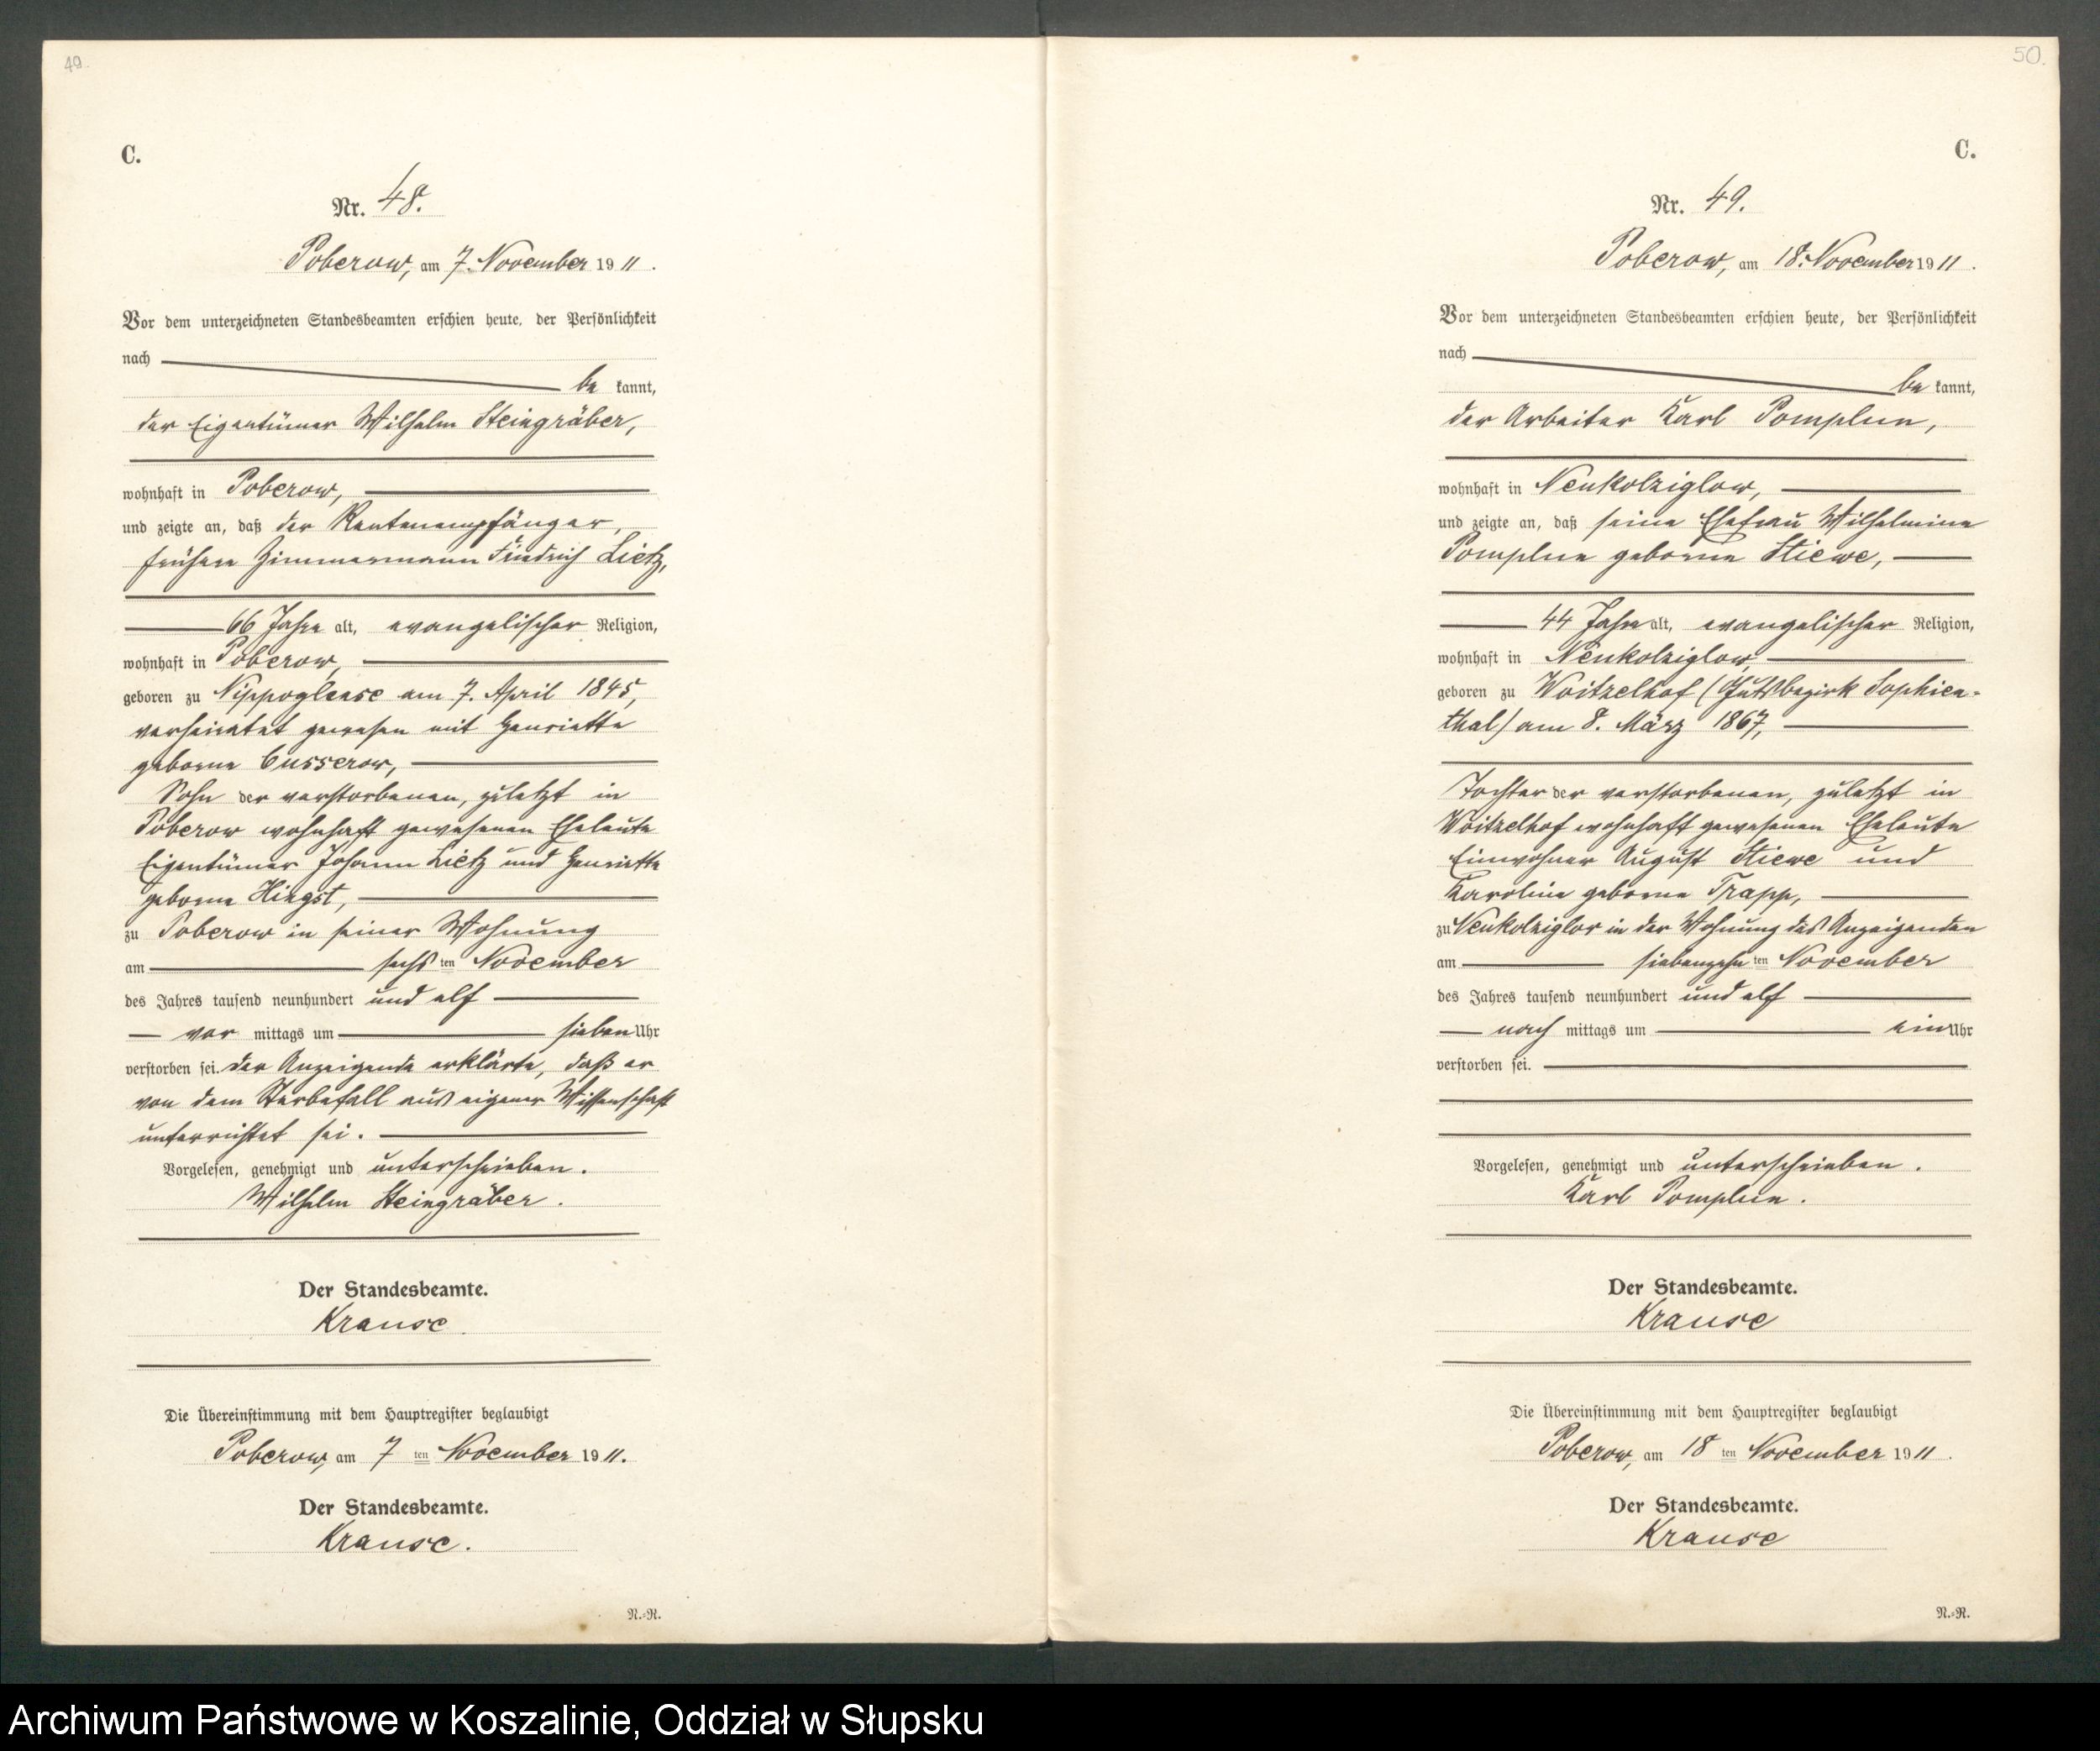 49.
C.
Nr. 48.
Poberow, am 7. November 1911.
Vor dem unterzeichneten Standesbeamten erschien heute, der Persönlichkeit
nach
be kannt,
der Eigentümer Wilhelm Steingräber,
wohnhaft in Poberow,
und zeigte an, daß der Rentenempfänger,
frühere Zimmermann Friedrich Lietz,
66 Jahre alt, evangelischer Religion,
wohnhaft in Poberow,
geboren zu Nippoglense am 7. April 1845,
verheiratet gewesen mit Henriette
geborne Cusserow,
Sohn der verstorbenen, zuletzt in
Poberow wohnhaft gewesenen Eheleute
Eigentümer Johann Lietz und Henriette
geborne Hingst,
zu Poberow in seiner Wohnung
am sechsten November
des Jahres tausend neunhundert und elf
vor mittags um sieben Uhr
verstorben sei. Der Anzeigende erklärte, daß er
von dem Sterbefall aus eigener Wissenschaft
unterrichtet sei.
Vorgelesen, genehmigt und unterschrieben.
Wilhelm Steingräber.
Der Standesbeamte.
Krause.
Die Übereinstimmung mit dem Hauptregister beglaubigt
Poberow, am 7 ten November 1911.
Der Standesbeamte.
Krause.
N.=R.
50.
C.
Nr. 49.
Poberow, am 18. November 1911.
Vor dem unterzeichneten Standesbeamten erschien heute, der Persönlichkeit
nach
be kannt,
der Arbeiter Karl Pomplun,
wohnhaft in Neukolziglow,
und zeigte an, daß seine Ehefrau Wilhelmine
Pomplun geborne Stiewe,
44 Jahre alt, evangelischer Religion,
wohnhaft in Neukolziglow,
geboren zu Woitzelhof (Gutsbezirk Sophien=
thal) am 8. März 1867,
Tochter der verstorbenen, zuletzt in
Woitzelhof wohnhaft gewesenen Eheleute
Einwohner August Stiewe und
Karoline geborne Trapp,
zu Neukolziglow in der Wohnung des Anzeigenden
am siebenzehnten November
des Jahres tausend neunhundert und elf
nach mittags um ein Uhr
verstorben sei.
Vorgelesen, genehmigt und unterschrieben.
Karl Pomplun.
Der Standesbeamte.
Krause
Die Übereinstimmung mit dem Hauptregister beglaubigt
Poberow, am 18 ten November 1911.
Der Standesbeamte.
Krause
N.=R.
Archiwum Państwowe w Koszalinie, Oddział w Słupsku